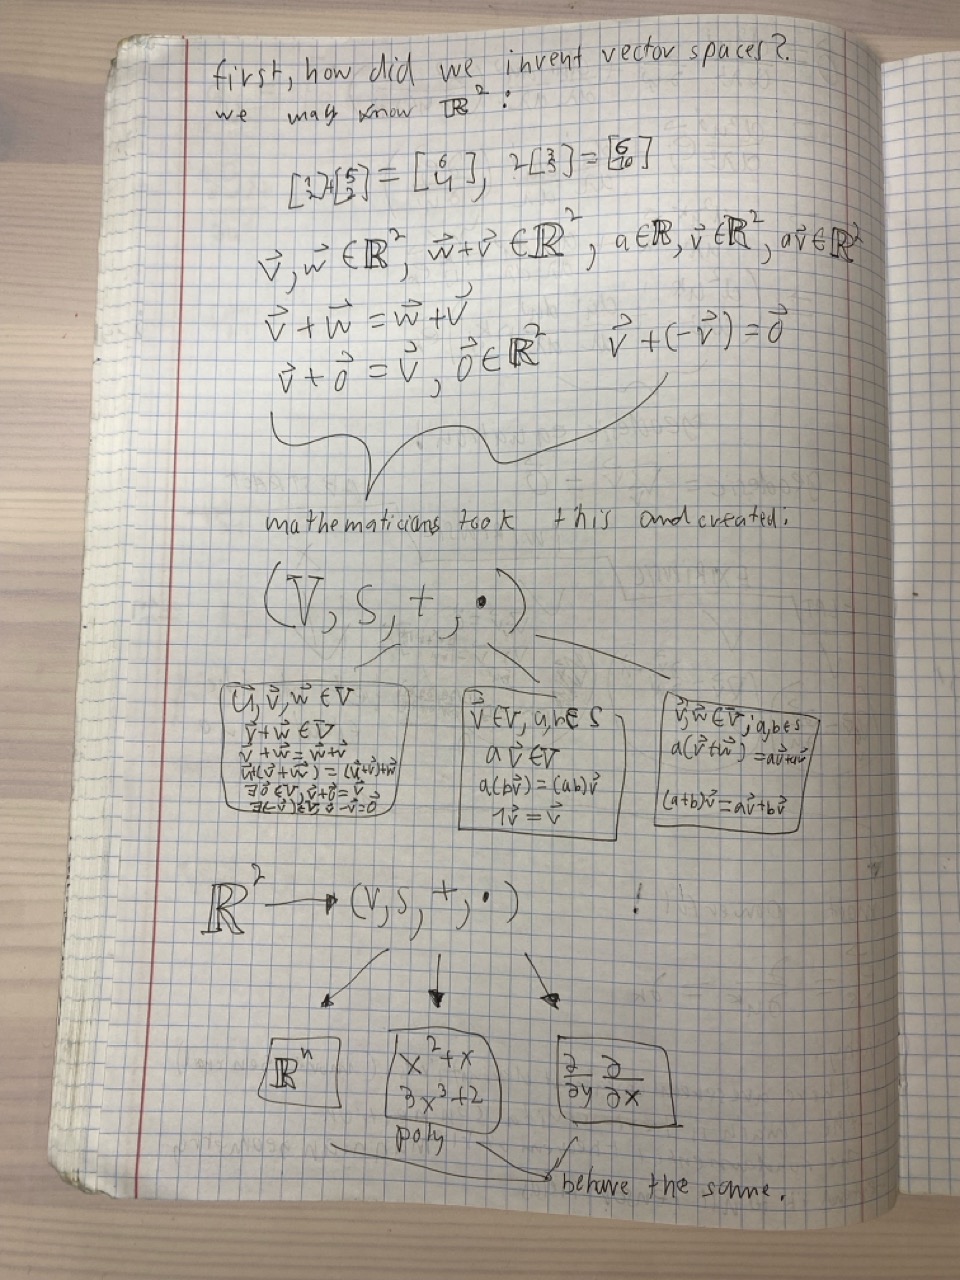 first, how did we invent vector spaces?
we may know ℝ²:
[1 2]+[5 2] = [6 4], 2[3 5] = [6 10]
v⃗, w⃗ ∈ ℝ², w⃗+v⃗ ∈ ℝ², a∈ℝ, v⃗∈ℝ², av⃗∈ℝ²
v⃗ + w⃗ = w⃗ + v⃗
v⃗ + 0⃗ = v⃗, 0⃗ ∈ ℝ² v⃗ + (-v⃗) = 0⃗
mathematicians took this and created:
(V, S, +, ·)
u⃗, v⃗, w⃗ ∈ V
v⃗ + w⃗ ∈ V
v⃗ + w⃗ = w⃗ + v⃗
u⃗+(v⃗+w⃗) = (u⃗+v⃗)+w⃗
v⃗ ∈ V, a,b ∈ S
a v⃗ ∈ V
a(bv⃗) = (ab)v⃗
1v⃗ = v⃗
v⃗, w⃗ ∈ V; a,b ∈ S
a(v⃗+w⃗) = av⃗+aw⃗
(a+b)v⃗ = av⃗+bv⃗
ℝ² → (V, S, +, ·) !
ℝⁿ
x²+x
3x³+2
poly
∂/∂y ∂/∂x
behave the same.